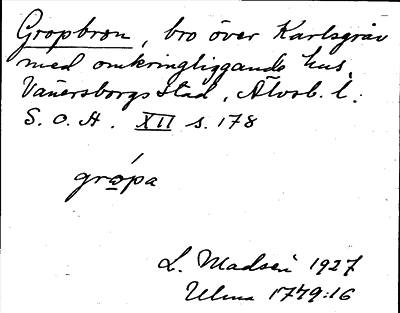 Gropbron, bro över Karlsgrav
med omkringliggande hus,
Vänersborgs stad, Älvsb. l.
S. O. Ä. XII s. 178
grópa
L. Madsén 1927
Ulma 1779:16